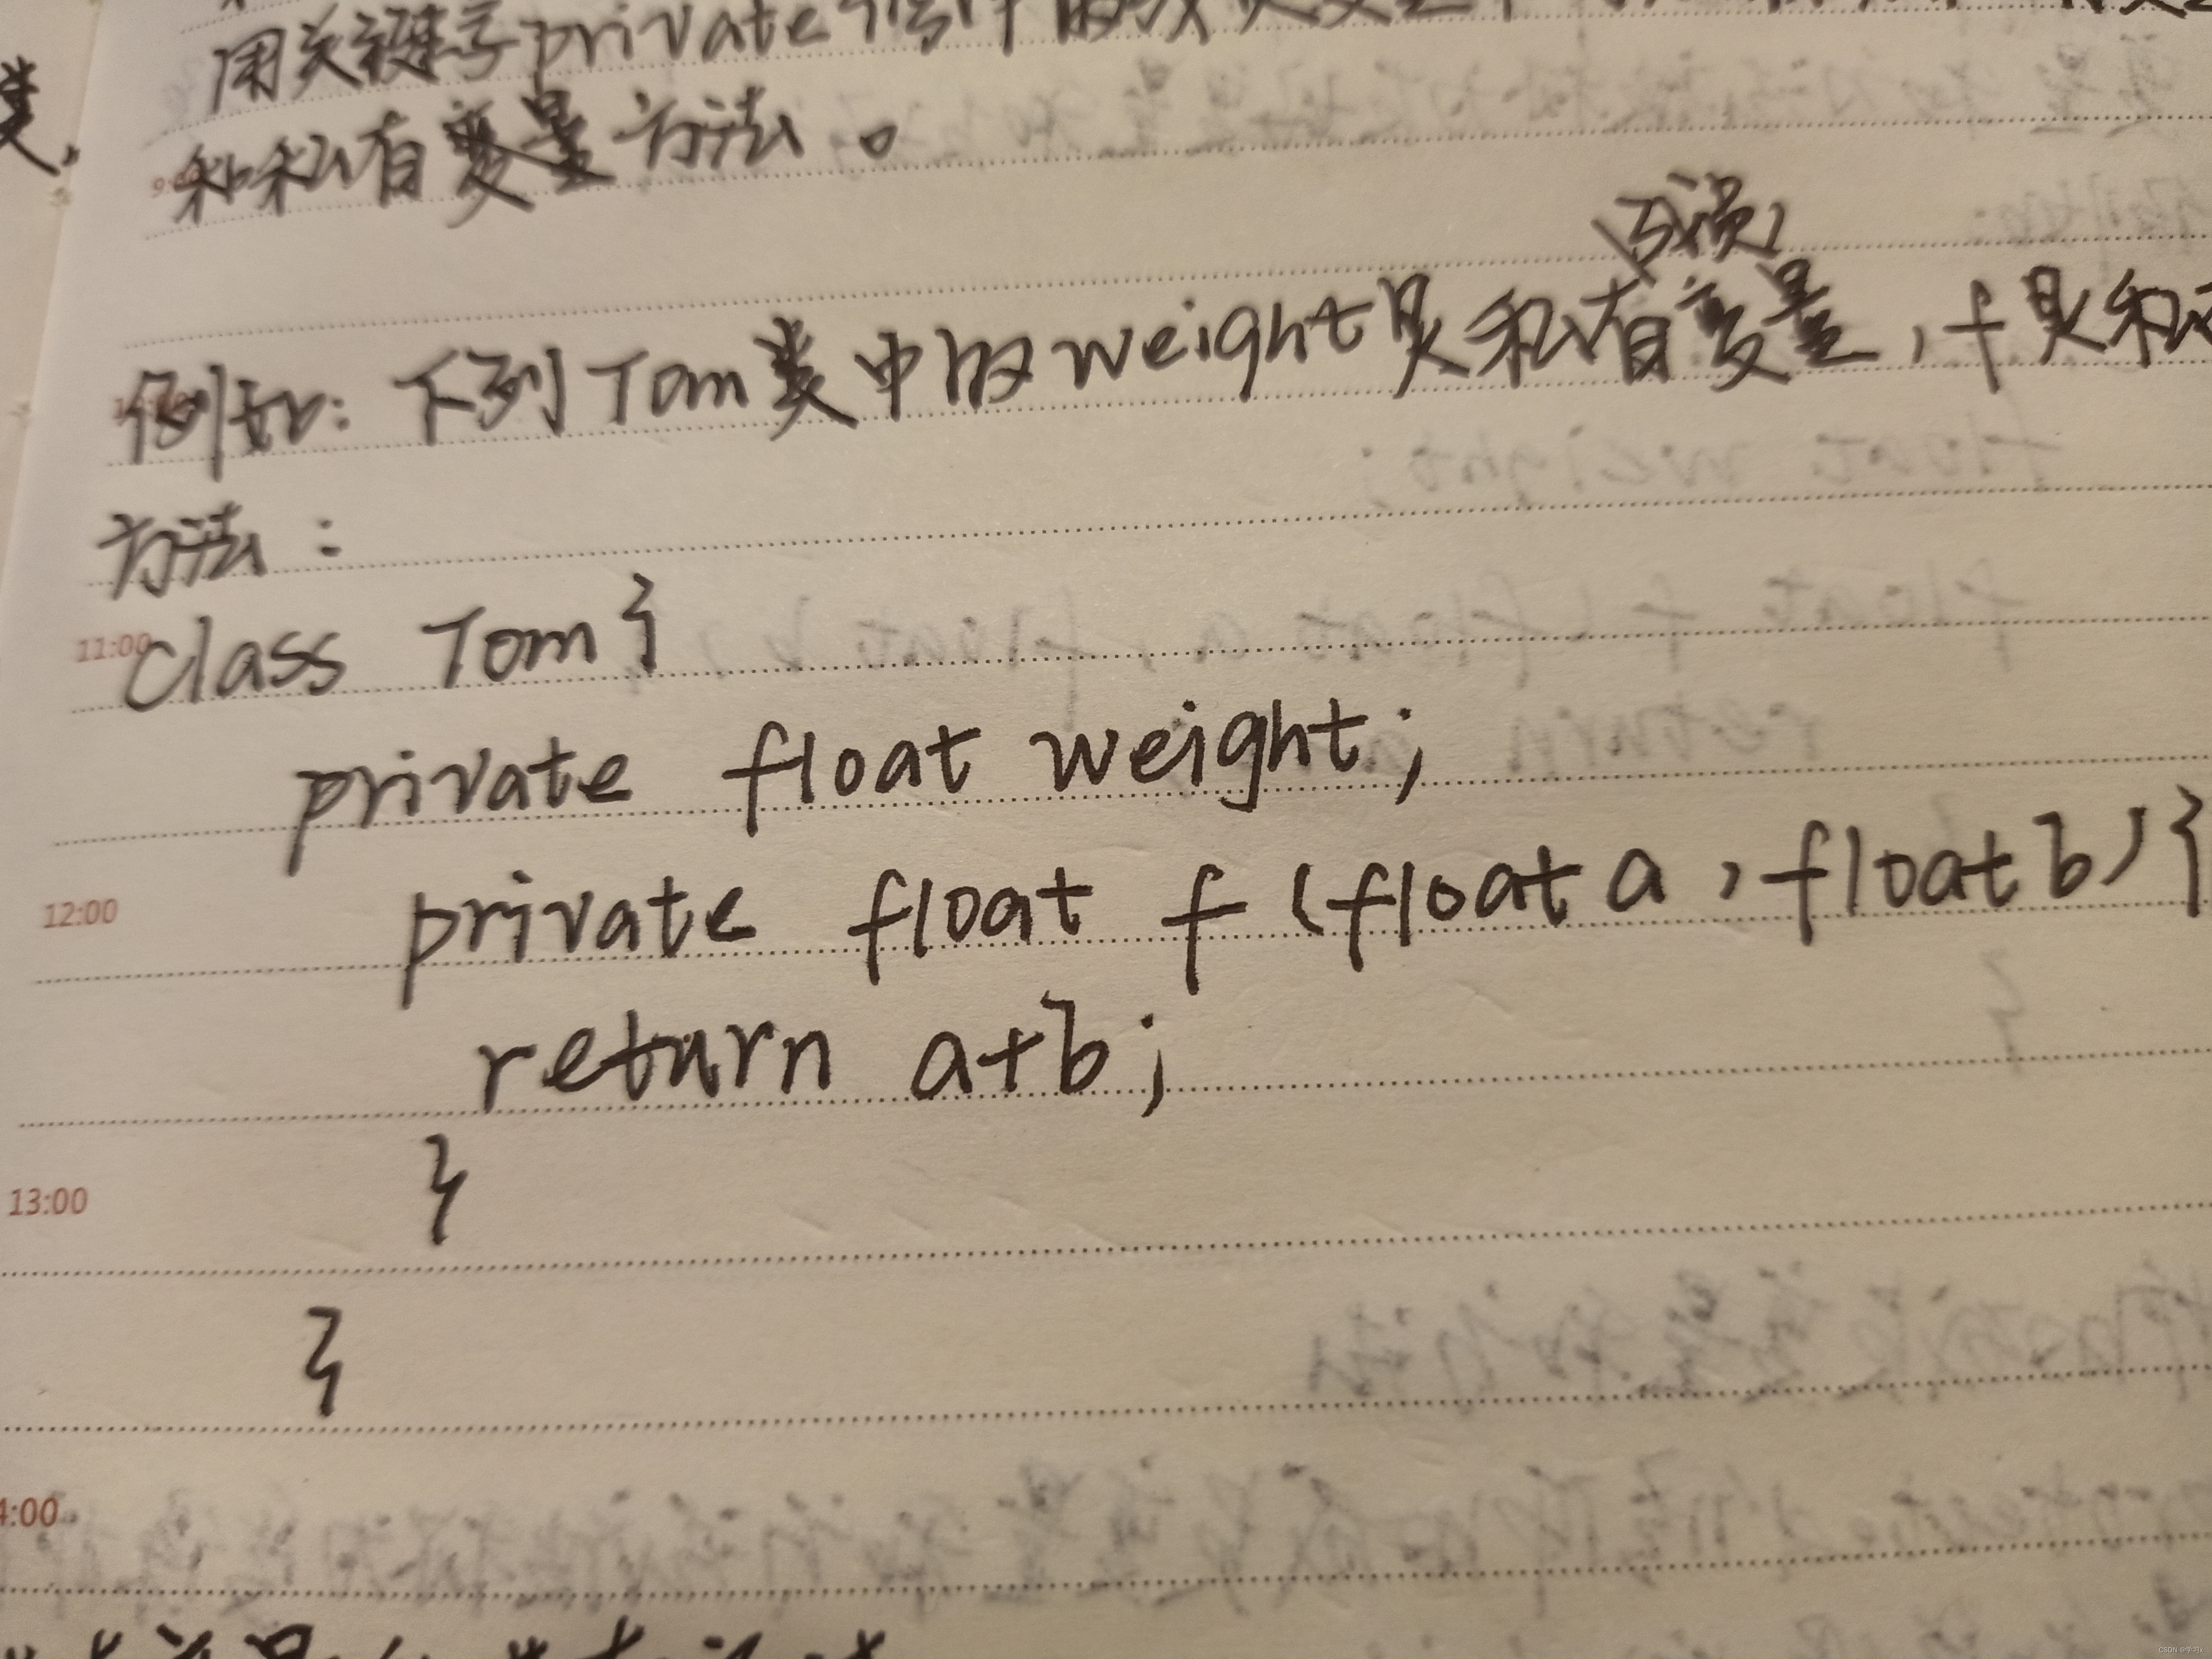 用关键字private修饰的成员变量和
和私有变量方法。
9:00
成员
例如:下列Tom类中的weight是私有变量,f是私有
方法:
11:00
class Tom{
private float weight;
12:00
private float f(float a,float b){
return a+b;
}
13:00
}
4:00
CSDN